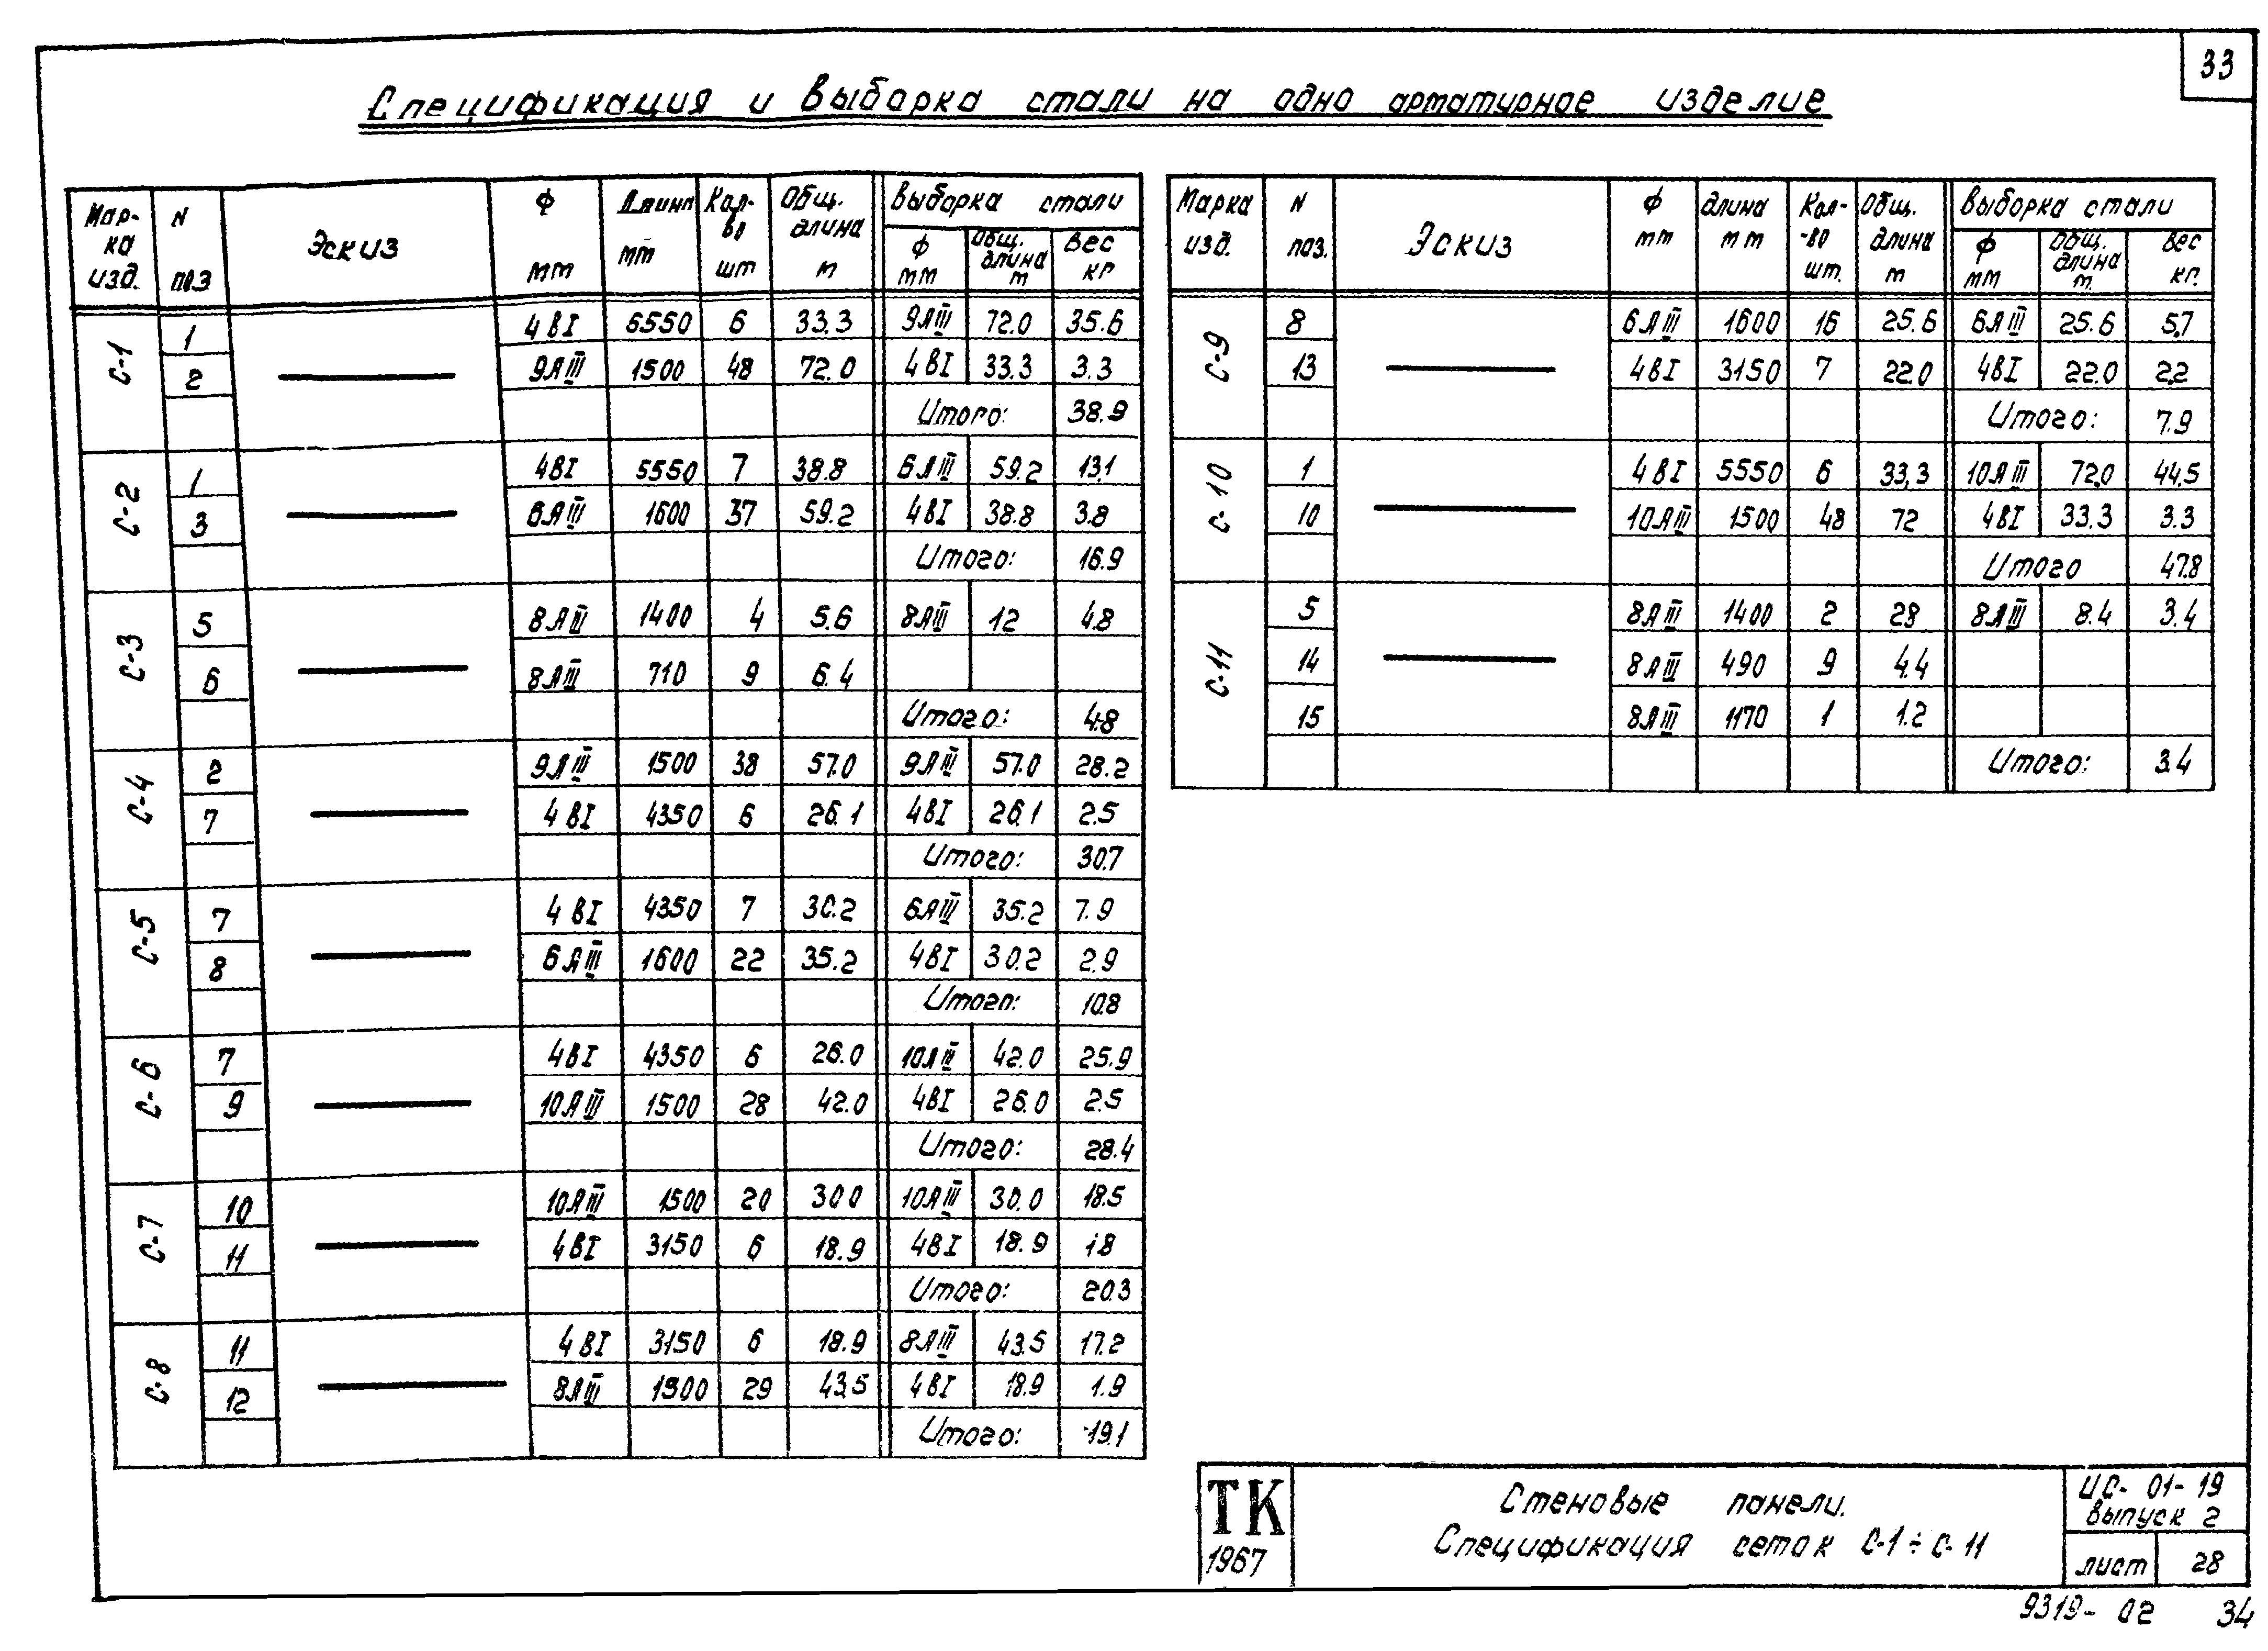 33
Спецификация и выборка стали на одно арматурное изделие
Мар-ка изд. | N поз | Эскиз | Ф мм | Длина мм | Кол-во шт | Общ. длина м | Выборка стали: Ф мм | Общ. длина м | Вес кг
С-1 | 1 | 4ВI | 5550 | 6 | 33.3 | 9АIII | 72.0 | 35.6
2 | 9АIII | 1500 | 48 | 72.0 | 4ВI | 33.3 | 3.3
Итого: 38.9
С-2 | 1 | 4ВI | 5550 | 7 | 38.8 | 6АIII | 59.2 | 13.1
3 | 6АIII | 1600 | 37 | 59.2 | 4ВI | 38.8 | 3.8
Итого: 16.9
С-3 | 5 | 8АIII | 1400 | 4 | 5.6 | 8АIII | 12 | 4.8
6 | 8АIII | 710 | 9 | 6.4
Итого: 4.8
С-4 | 2 | 9АIII | 1500 | 38 | 57.0 | 9АIII | 57.0 | 28.2
7 | 4ВI | 4350 | 6 | 26.1 | 4ВI | 26.1 | 2.5
Итого: 30.7
С-5 | 7 | 4ВI | 4350 | 7 | 30.2 | 6АIII | 35.2 | 7.9
8 | 6АIII | 1600 | 22 | 35.2 | 4ВI | 30.2 | 2.9
Итого: 10.8
С-6 | 7 | 4ВI | 4350 | 6 | 26.0 | 10АIII | 42.0 | 25.9
9 | 10АIII | 1500 | 28 | 42.0 | 4ВI | 26.0 | 2.5
Итого: 28.4
С-7 | 10 | 10АIII | 1500 | 20 | 30.0 | 10АIII | 30.0 | 18.5
11 | 4ВI | 3150 | 6 | 18.9 | 4ВI | 18.9 | 1.8
Итого: 20.3
С-8 | 11 | 4ВI | 3150 | 6 | 18.9 | 8АIII | 43.5 | 17.2
12 | 8АIII | 1500 | 29 | 43.5 | 4ВI | 18.9 | 1.9
Итого: 19.1
Марка изд. | N поз. | Эскиз | Ф мм | Длина мм | Кол-во шт. | Общ. длина м | Выборка стали: Ф мм | Общ. длина м. | Вес кг.
С-9 | 8 | 6АIII | 1600 | 16 | 25.6 | 6АIII | 25.6 | 5.7
13 | 4ВI | 3150 | 7 | 22.0 | 4ВI | 22.0 | 2.2
Итого: 7.9
С-10 | 1 | 4ВI | 5550 | 6 | 33.3 | 10АIII | 72.0 | 44.5
10 | 10АIII | 1500 | 48 | 72 | 4ВI | 33.3 | 3.3
Итого 47.8
С-11 | 5 | 8АIII | 1400 | 2 | 28 | 8АIII | 8.4 | 3.4
14 | 8АIII | 490 | 9 | 4.4
15 | 8АIII | 1170 | 1 | 1.2
Итого: 3.4
ТК
1967
Стеновые панели.
Спецификация сеток С-1÷С-11
ИС-01-19
Выпуск 2
лист 28
9319-02 34